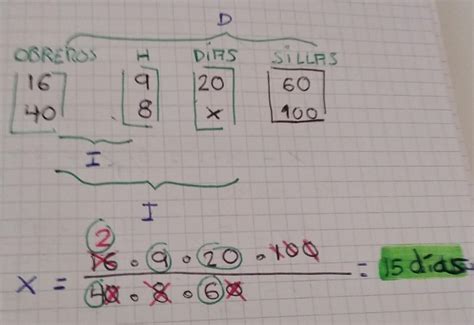 D
OBREROS H DÍAS SILLAS
16 9 20 60
40 8 x 100
I
I
2
x = 16 · 9 · 20 · 100 / 40 · 8 · 60 = 15 días